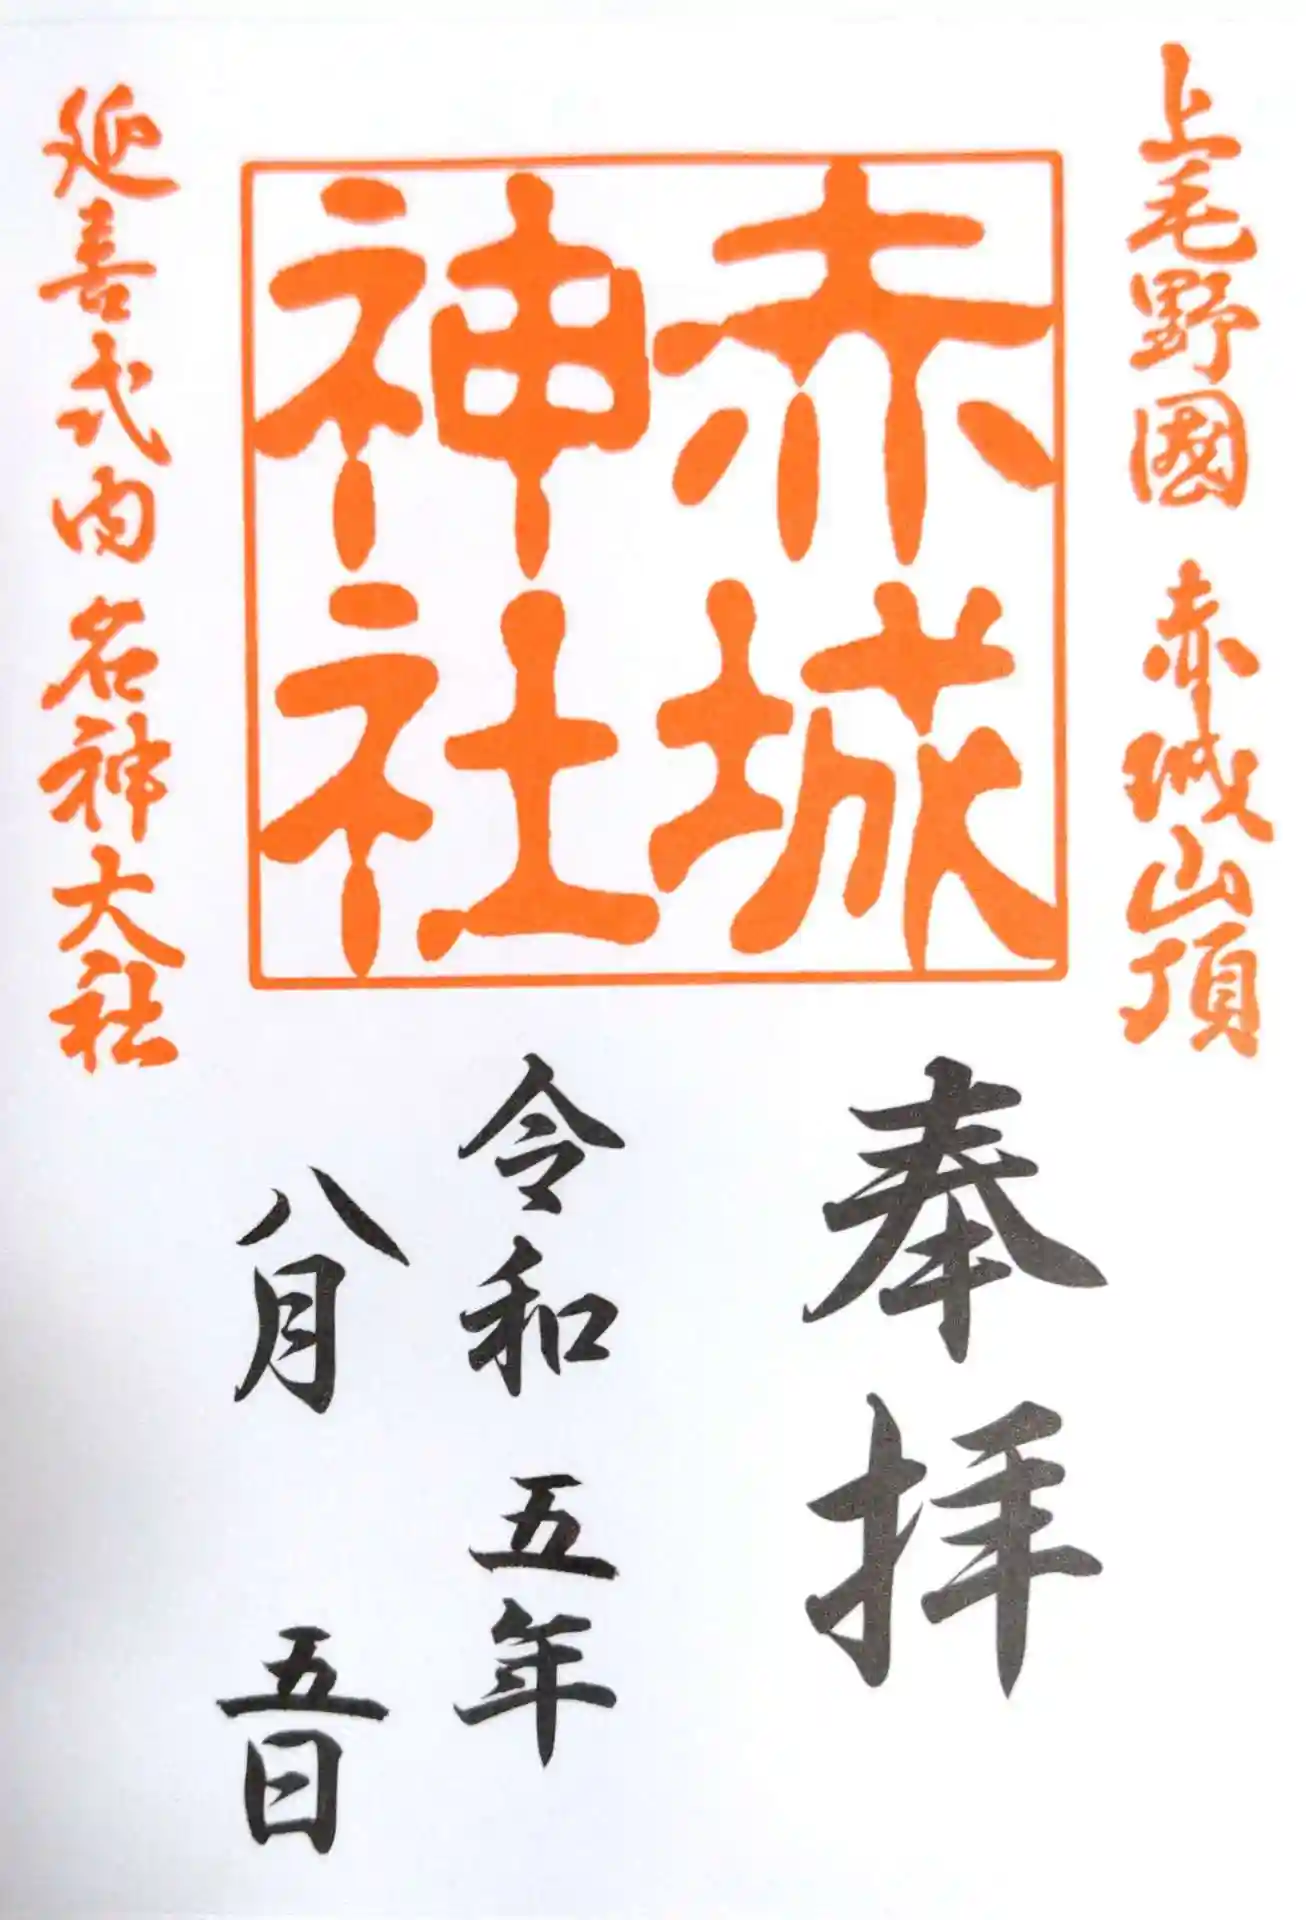 上毛野國 赤城山頂
赤城
神社
延喜式内 名神大社
奉拝
令和五年
八月五日